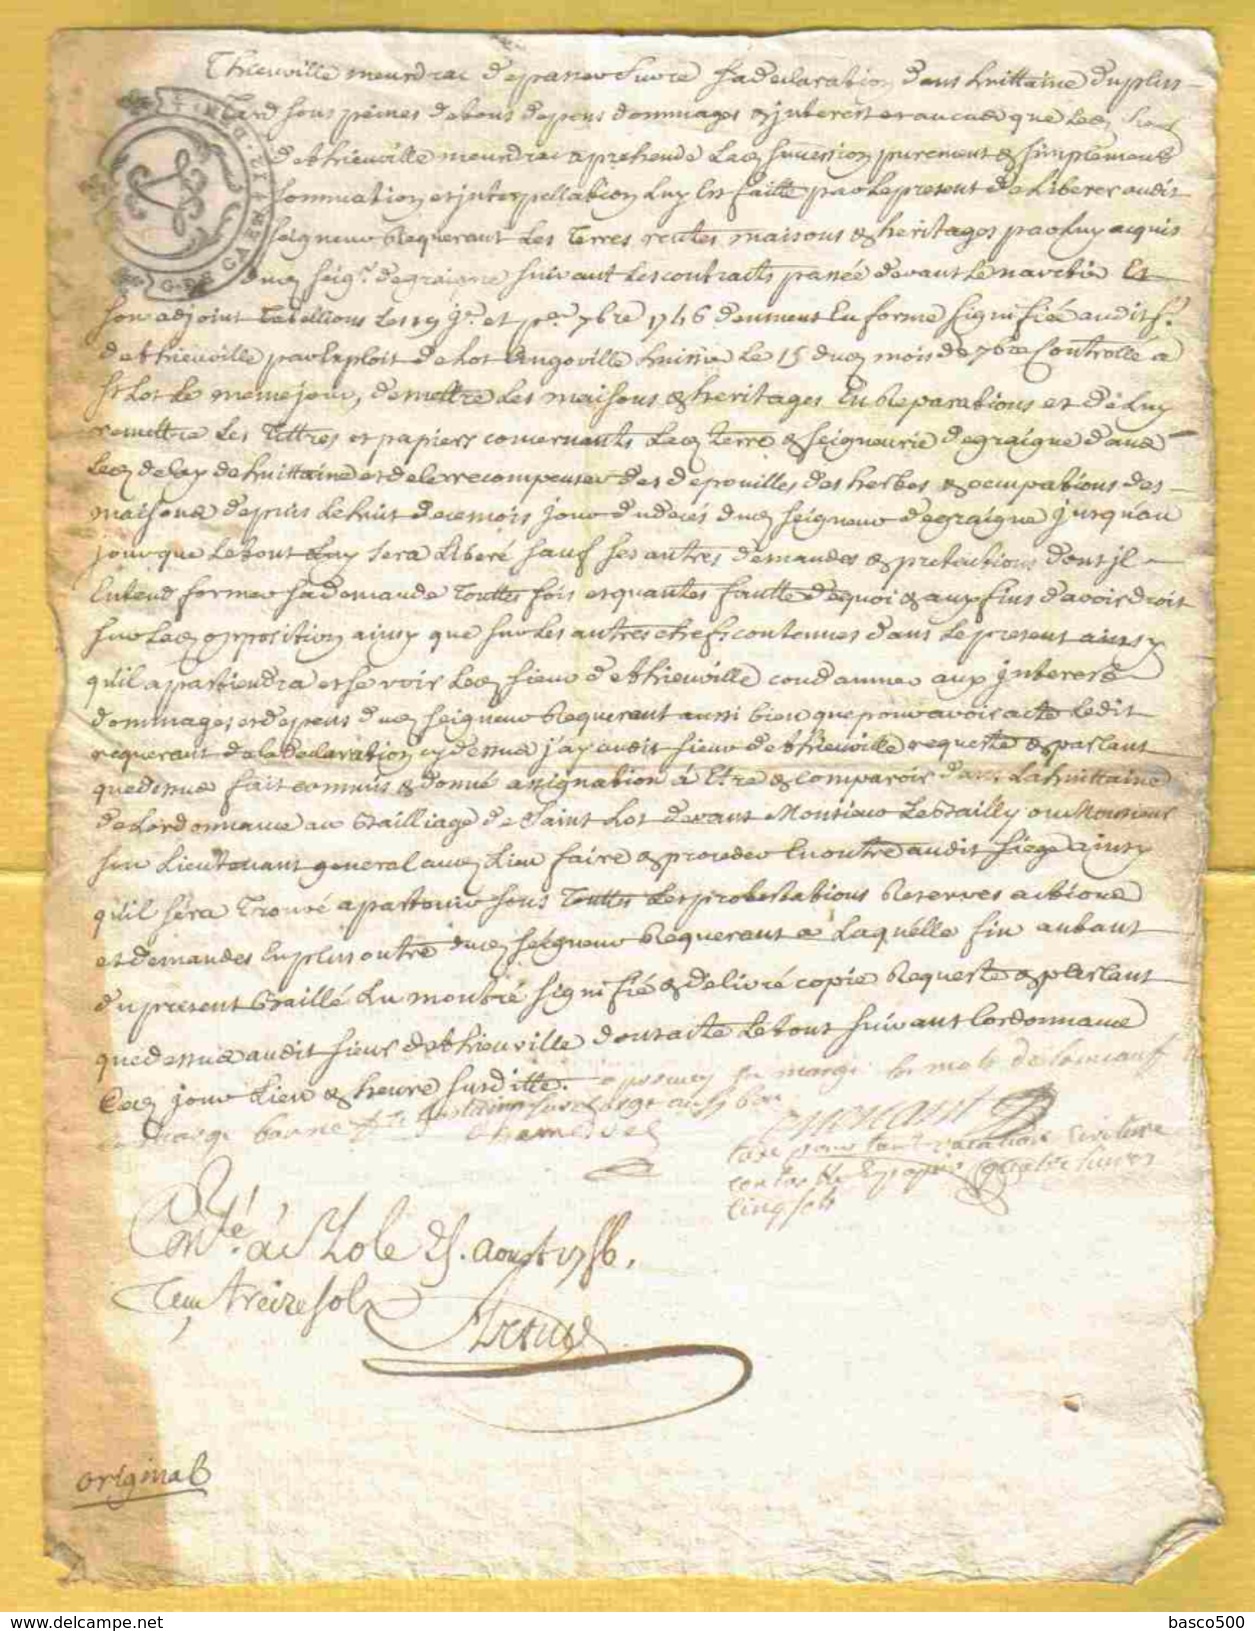 Thieuville meurdrac de passer suivre sa declaration dans huittaine du plus
tard sous peines de tous depens dommages & interest et au cas que led. sieur
de thieuville meurdrac aprehende lad. succession purement & simplement
sommation et interpellation luy est faitte par le present de liberer audit
seigneur Requerant les terres rentes maisons & heritages par luy acquis
dud. seigr. de graigne suivant les contracts passé devant le
son adjoint tabellions les 7bre 1746 duement en forme signifiée audit sr.
de thieuville par exploit de Lot Angoville huissier le 15 dud. mois de 7bre Controllé a
St Lot le meme jour, de mettre les maisons & heritages en Reparations et de luy
remettre les tittres et papiers concernants lad. terre & seigneurie de graigne dans
led. delay de huittaine et de le recompenser des depouilles des herbes & occupations des
maisons depuis le huit de ce mois jour du decés dud. seigneur de graigne jusqu'au
jour que le tout luy sera liberé sauf ses autres demandes & pretentions dont jl
entend former sa demande touttes fois et quantes faulte de quoi & aux fins d'avoir droit
sur lad. opposition ainsy que sur les autres chefs contenues dans le present ainsy
qu'il apartiendra et se voir led. sieur de thieuville condamner aux jnterests
dommages et depens dud. seigneur Requerant aussi bien que pour avoir acte ledit
requerant de la declaration cy dessus j'ay audit sieur de thieuville requeste & parlant
que dessus fait commis & donné assignation à etre & comparoir dans la huittaine
de lordonnance au Bailliage de Saint Lot devant Monsieur le Bailly ou Monsieur
son lieutenant general aud. lieu faire & proceder en outre audit siege ainsy
qu'il sera trouvé apartenir sous touttes les protestations Reserves actions
et demandes en plus outre dud. seigneur Requerant a laquelle fin autant
du present Baillé lu montré signifié & delivré copie Requeste & parlant
que dessus audit sieur de thieuville dont acte le tout suivant lordonnance
Ced. jour lieu & heure susditte. en marge le mot de
en marge bonne
taxe pour tout vacation Ecriture
controlle & papier quatre livres
cinq sols
Conté. à St Lo le 25. Aoust 1756.
treize sols
original
delcampe.net
basco500